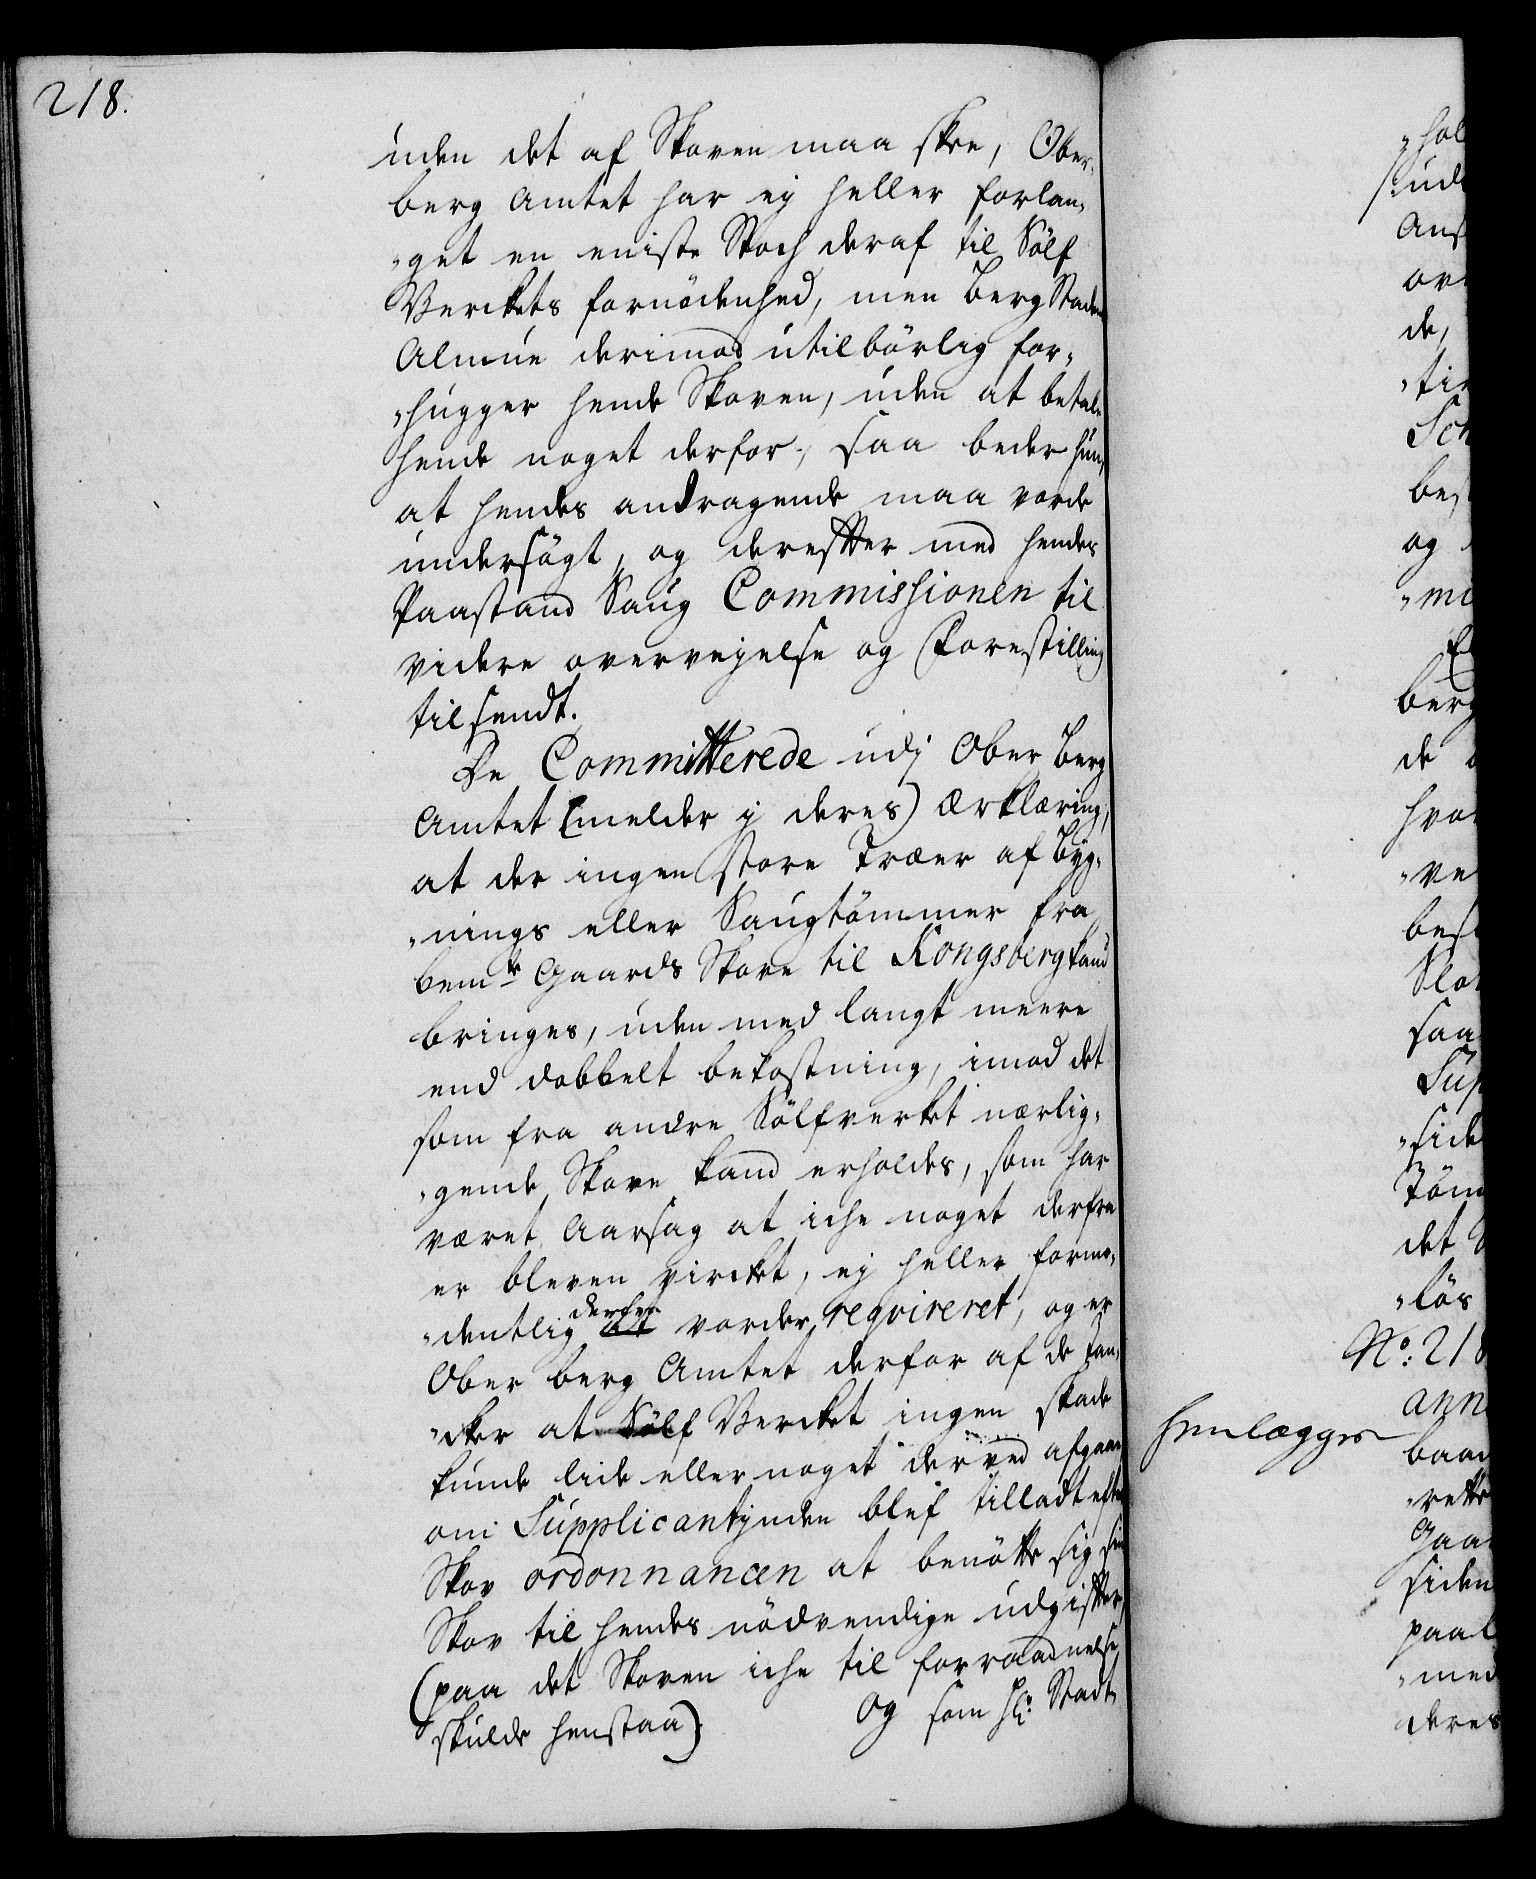 218.
uden det af Skoven maa skee, Ober-
berg Amtet har ej heller forlan-
"get en eniste Stoch deraf til Sølf
Verckets fornødenhed, men Berg Stadens
Almue derimod utilbørlig for-
"hugger hende Skoven, uden at betale
hende noget derfor, saa beder hun,
at hendes andragende maa vorde
undersøgt, og derefter med hendes
Paastand Saug Commissionen til
videre overvejelse og Forestilling
tilsendt.
De Committerede udj Ober Berg
Amtet (melder j deres) Ærklæring,
at der ingen store Træer af Byg-
"nings eller Saugtømmer fra
bemte Gaards Skove til Kongsberg kand
bringes, uden med langt meere
end dobbelt bekostning, imod det
som fra andre Sølfverket nærlig-
"gende Skove kand erholdes, som har
været Aarsag at iche noget derfra
er bleven vircket, ej heller formo-
"dentlig derfra vorder reqvireret, og er
Ober berg Amtet derfor af de Tan-
"cker at Sølf Vercket ingen skade
kunde lide eller noget derved afgaae,
om Supplicantjnden blef tilladt efter
Skov ordonnancen at benötte sig sin
Skov til hendes nødvendige udgifter,
(paa det Skoven iche til forraadnelse
skulde henstaa). Og som Hr. Stadt
"hol
/:ud
Ans
ov
de,
"ti
Sch
bes
og
"mi
E
berg
de
hvor
"ve
best
Slot
saa
Sup
"side
Töm
det
"løs
No: 218
anne
henlægges
baad
"rette
Gaa
siden
paal
"med
deres